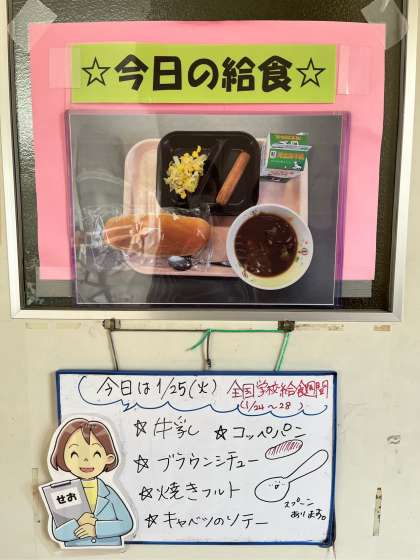 ☆今日の給食☆
今日は1/25(火) 全国学校給食週間
(1/24~28)
☆牛乳 ☆コッペパン
☆ブラウンシチュー
☆焼きフルト
☆キャベツのソテー
スプーン
あります。
せお